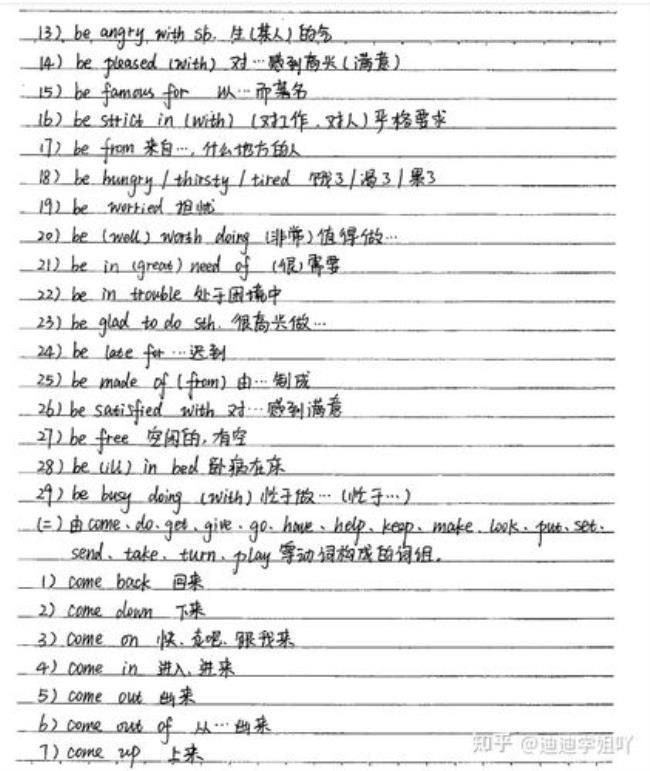 13) be angry with sb. 生(某人)的气
14) be pleased (with) 对…感到高兴(满意)
15) be famous for 以…而著名
16) be strict in (with) (对工作、对人)严格要求
17) be from 来自…,什么地方的人
18) be hungry / thirsty / tired 饿了/渴了/累了
19) be worried 担忧
20) be (well) worth doing (非常)值得做…
21) be in (great) need of (很)需要
22) be in trouble 处于困境中
23) be glad to do sth. 很高兴做…
24) be late for …迟到
25) be made of (from) 由…制成
26) be satisfied with 对…感到满意
27) be free 空闲的,有空
28) be (ill) in bed 卧病在床
29) be busy doing (with) 忙于做…(忙于…)
(二)由come、do、get、give、go、have、help、keep、make、look、put、set、
send、take、turn、play 等动词构成的词组.
1) come back 回来
2) come down 下来
3) come on 快、走吧、跟我来
4) come in 进入、进来
5) come out 出来
6) come out of 从…出来
7) come up 上来
知乎 @迪迪学姐吖